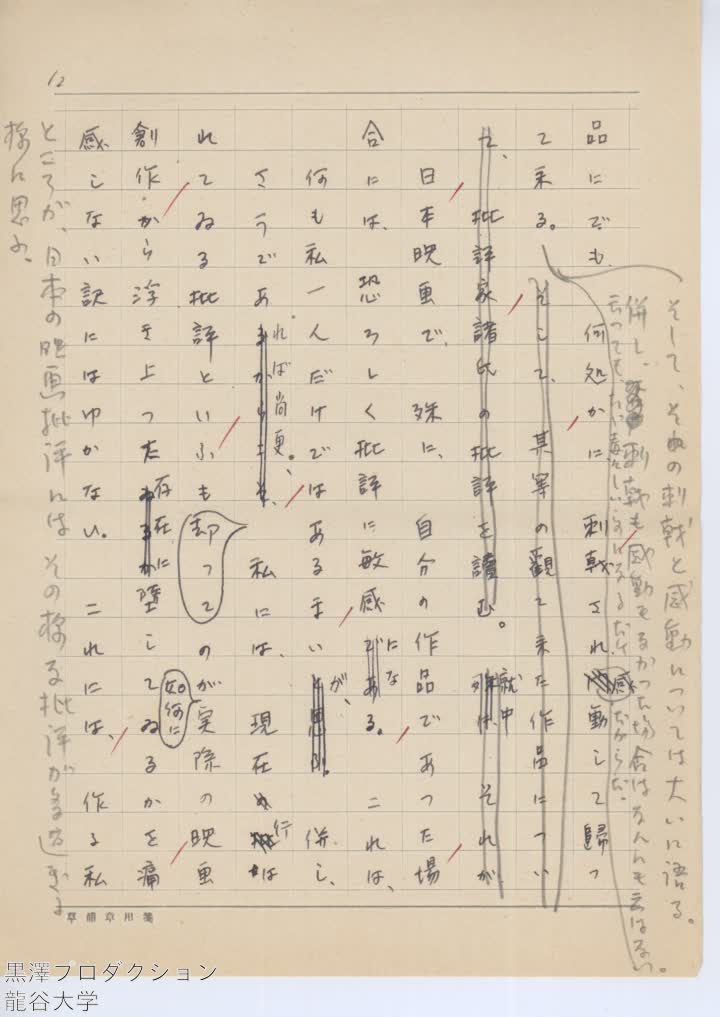 12
品にでも、何処かに、刺戟され、感動して歸つ
て来る。そして、其罪の觀て来た作品につい
て、批評家諸氏の批評を讀む。殊に、就中それが、
日本映画で、殊に、自分の作品であつた場
合には、恐ろしく批評に敏感になである。これは、
何も私一人だけではあるまいと思ふ。が、併し、
さうであるからこそ、れば尚更。私には、現在行は
れてゐる批評といふもの却つてが実際の映画
創作から浮き上つた存在に墮してゐるか如何にを痛
感しない訳にはゆかない。これには、作る私
そして、その刺戟と感動については大いに語る。
併し、刺戟も感動もなかつた場合はなんにも云はない。
云つても、だからだ。
ところが、日本の映画批評には、その様な批評が多過ぎる
様に思ふ。
草稿用箋
黒澤プロダクション
龍谷大学